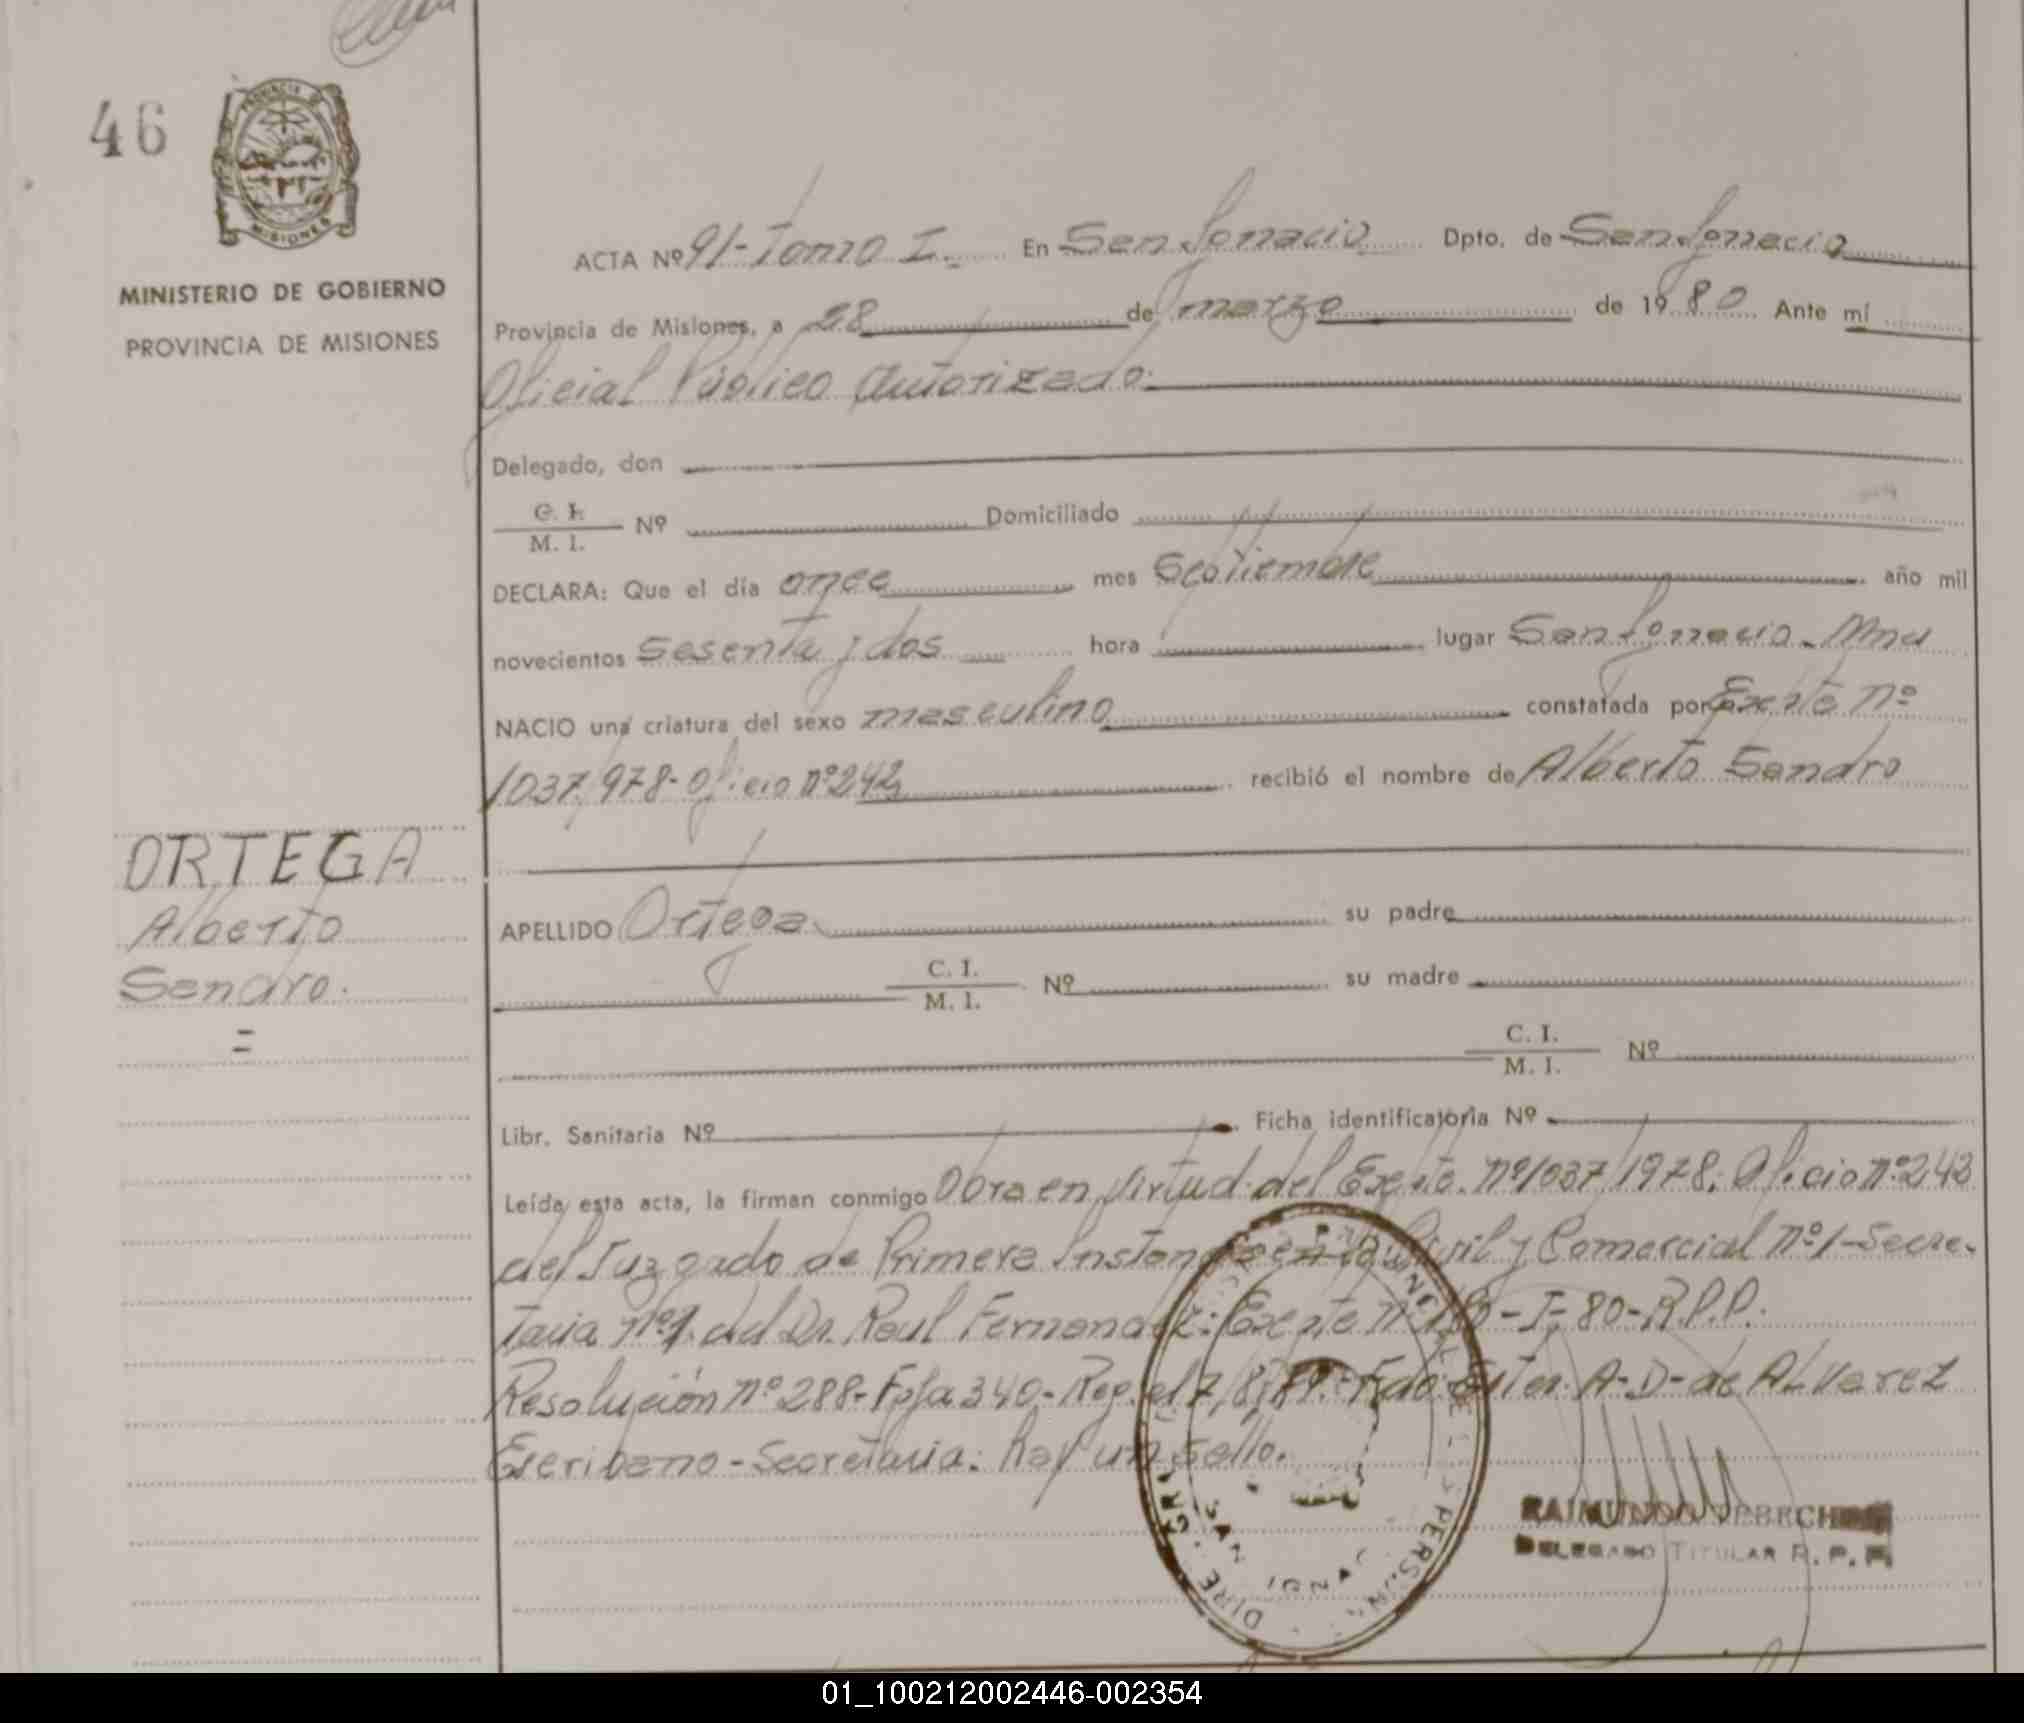 46
PROVINCIA DE
MISIONES
MINISTERIO DE GOBIERNO
PROVINCIA DE MISIONES
ACTA Nº 91-Tomo I. En San Ignacio Dpto. de San Ignacio
Provincia de Misiones, a 28 de marzo de 1980 Ante mí
Oficial Público Autorizado.
Delegado, don
C. I.
M. I. Nº Domiciliado
DECLARA: Que el día once mes Septiembre año mil
novecientos sesenta y dos hora lugar San Ignacio - Mnes
NACIO una criatura del sexo masculino constatada por Expte Nº
1037/978-Oficio nº 242 recibió el nombre de Alberto Sandro
ORTEGA
Alberto
Sandro.
APELLIDO Ortega su padre
C. I.
M. I. Nº su madre
C. I.
M. I. Nº
Libr. Sanitaria Nº Ficha identificatoria Nº
Leída esta acta, la firman conmigo Obra en virtud del Expte. nº 1037/1978; Oficio nº 242
del Juzgado de Primera Instancia en lo Civil y Comercial nº 1-Secre-
taria nº 1. del Dr. Raul Fernandez: Expte nº -I-80-R.P.P.
Resolución nº 288-Foja 340.- Reg. el 7/8/79.-Fdo Ester A-D-de ALVarez
Escribano-Secretaria: hay un sello.
RAIMUNDO
DELEGADO TITULAR R. P. P.
SAN IGNACIO
01_100212002446-002354